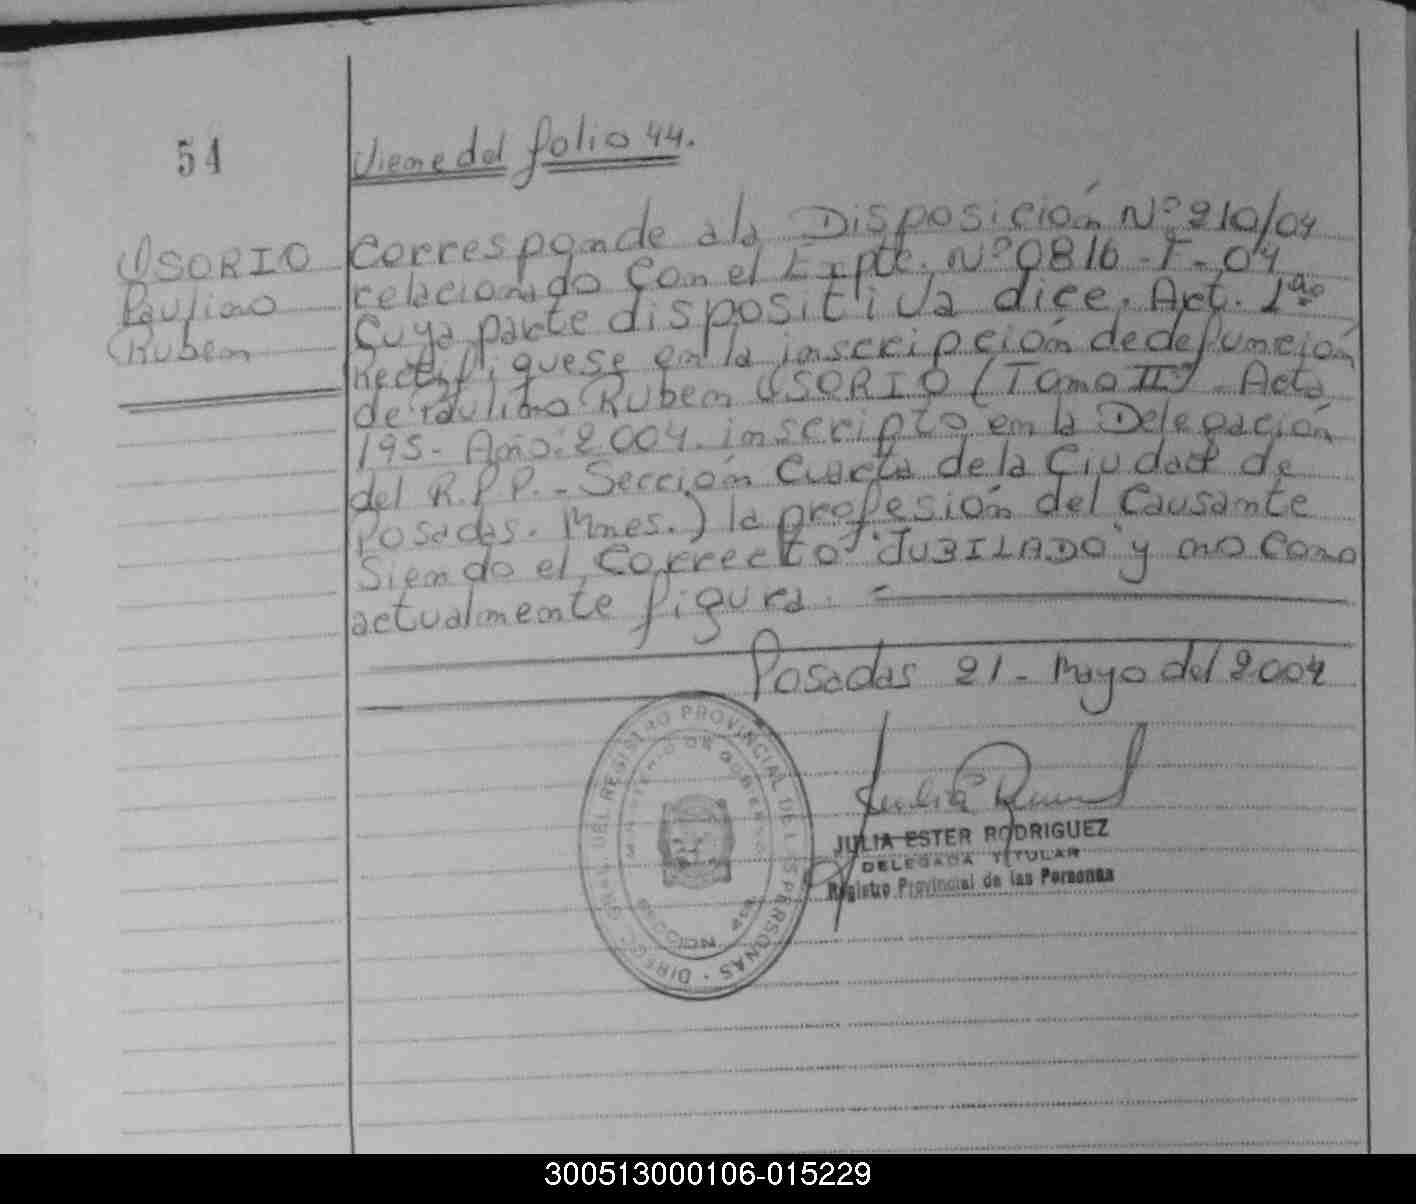 54
Viene del folio 44.
OSORIO
Paulino
Ruben
Corresponde a la Disposición Nº 210/04
relacionado con el Expte. Nº 0816-F-04
Cuya parte dispositiva dice. Art. 1º
Rectifiquese en la inscripción de defunción
de Paulino Ruben OSORIO (Tomo II Acta
195- Año: 2004. inscripto en la Delegación
del R.P.P.- Sección Cuarta de la Ciudad de
Posadas. Mnes.) la profesión del Causante
Siendo el Correcto "JUBILADO" y no Como
actualmente figura. =
Posadas 21- Mayo del 2004
JULIA ESTER RODRIGUEZ
DELEGADA TITULAR
Registro Provincial de las Personas
DIRECC. GRAL. DEL REGISTRO PROVINCIAL DE LAS PERSONAS
MINISTERIO DE GOBIERNO
300513000106-015229